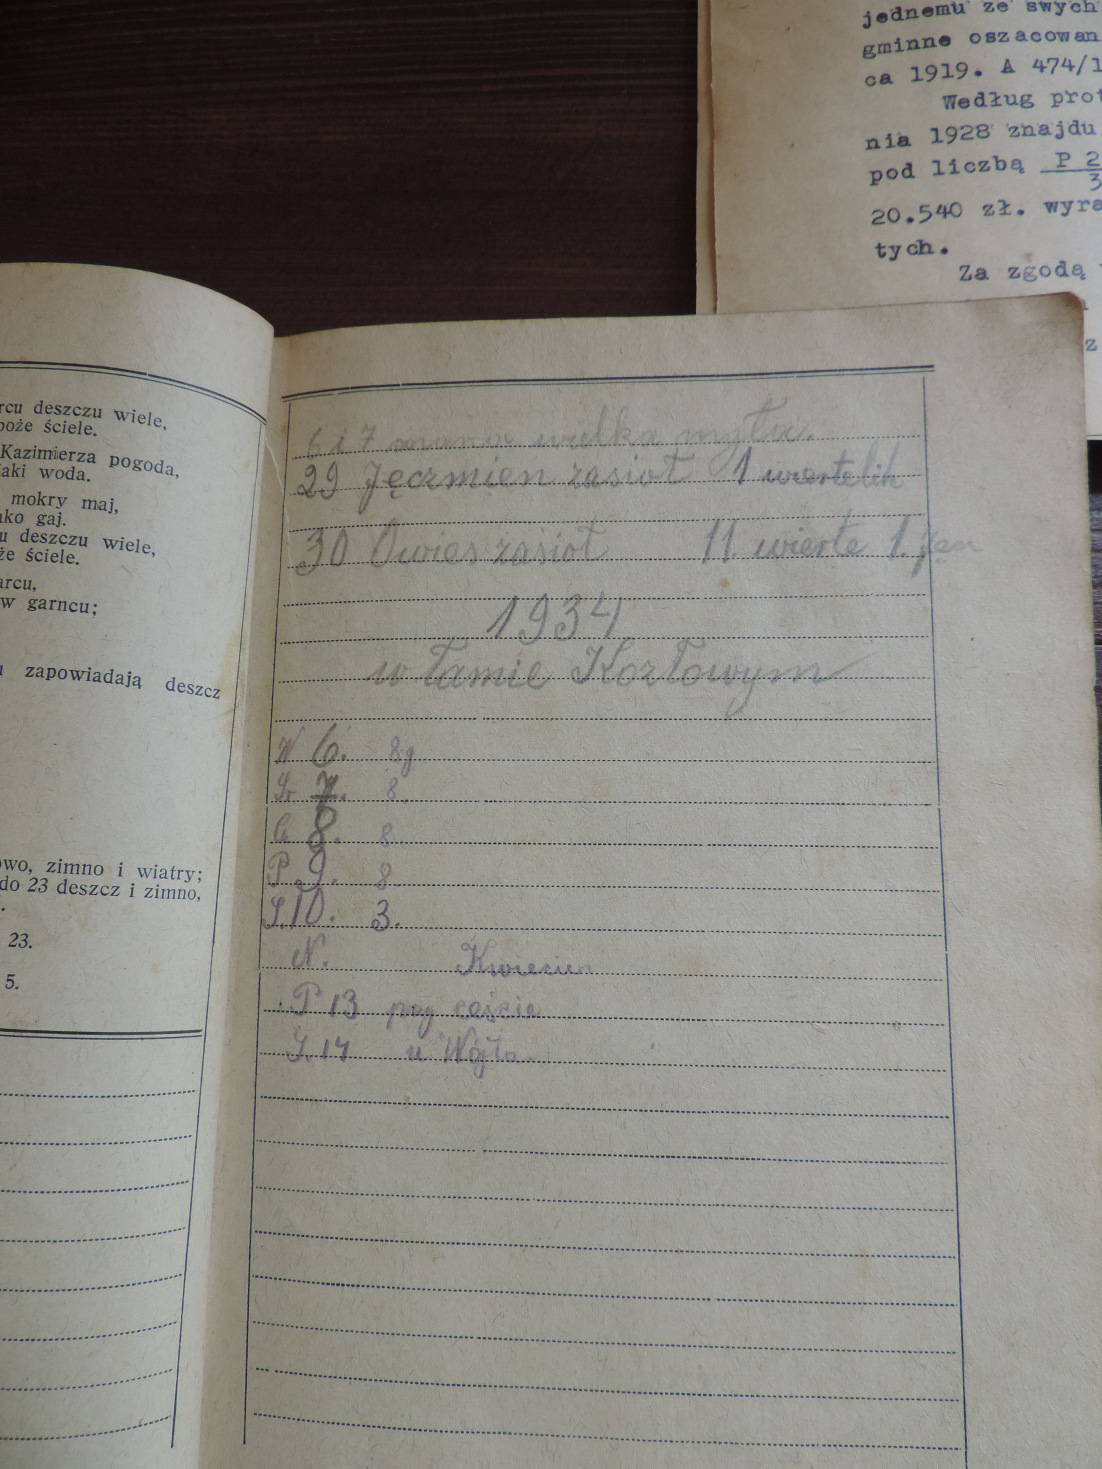 jednemu ze swych
gminne oszacowan
ca 1919. A 474/1
Według prot
nia 1928 znajdu
pod liczbą P 2
3
20.540 zł. wyra
tych.
Za zgodą
z
rcu deszczu wiele,
boże ściele.
Kazimierza pogoda,
aki woda.
mokry maj,
ako gaj.
u deszczu wiele,
że ściele.
arcu,
w garncu;
u zapowiadają deszcz
owo, zimno i wiatry;
do 23 deszcz i zimno,
23.
5.
6 i 7 marca wielka mgła.
29 Jęczmien zasioł 1 wiertelik
30 Owies zasioł 11 wierte 1.
1934
w łamie Kozłowym
W 6. 8g
Śr 7. 8.
C 8. 8.
P 9. 8
S. 10. 3.
N. Kwiecien
P 13
S. 14 u Wójta